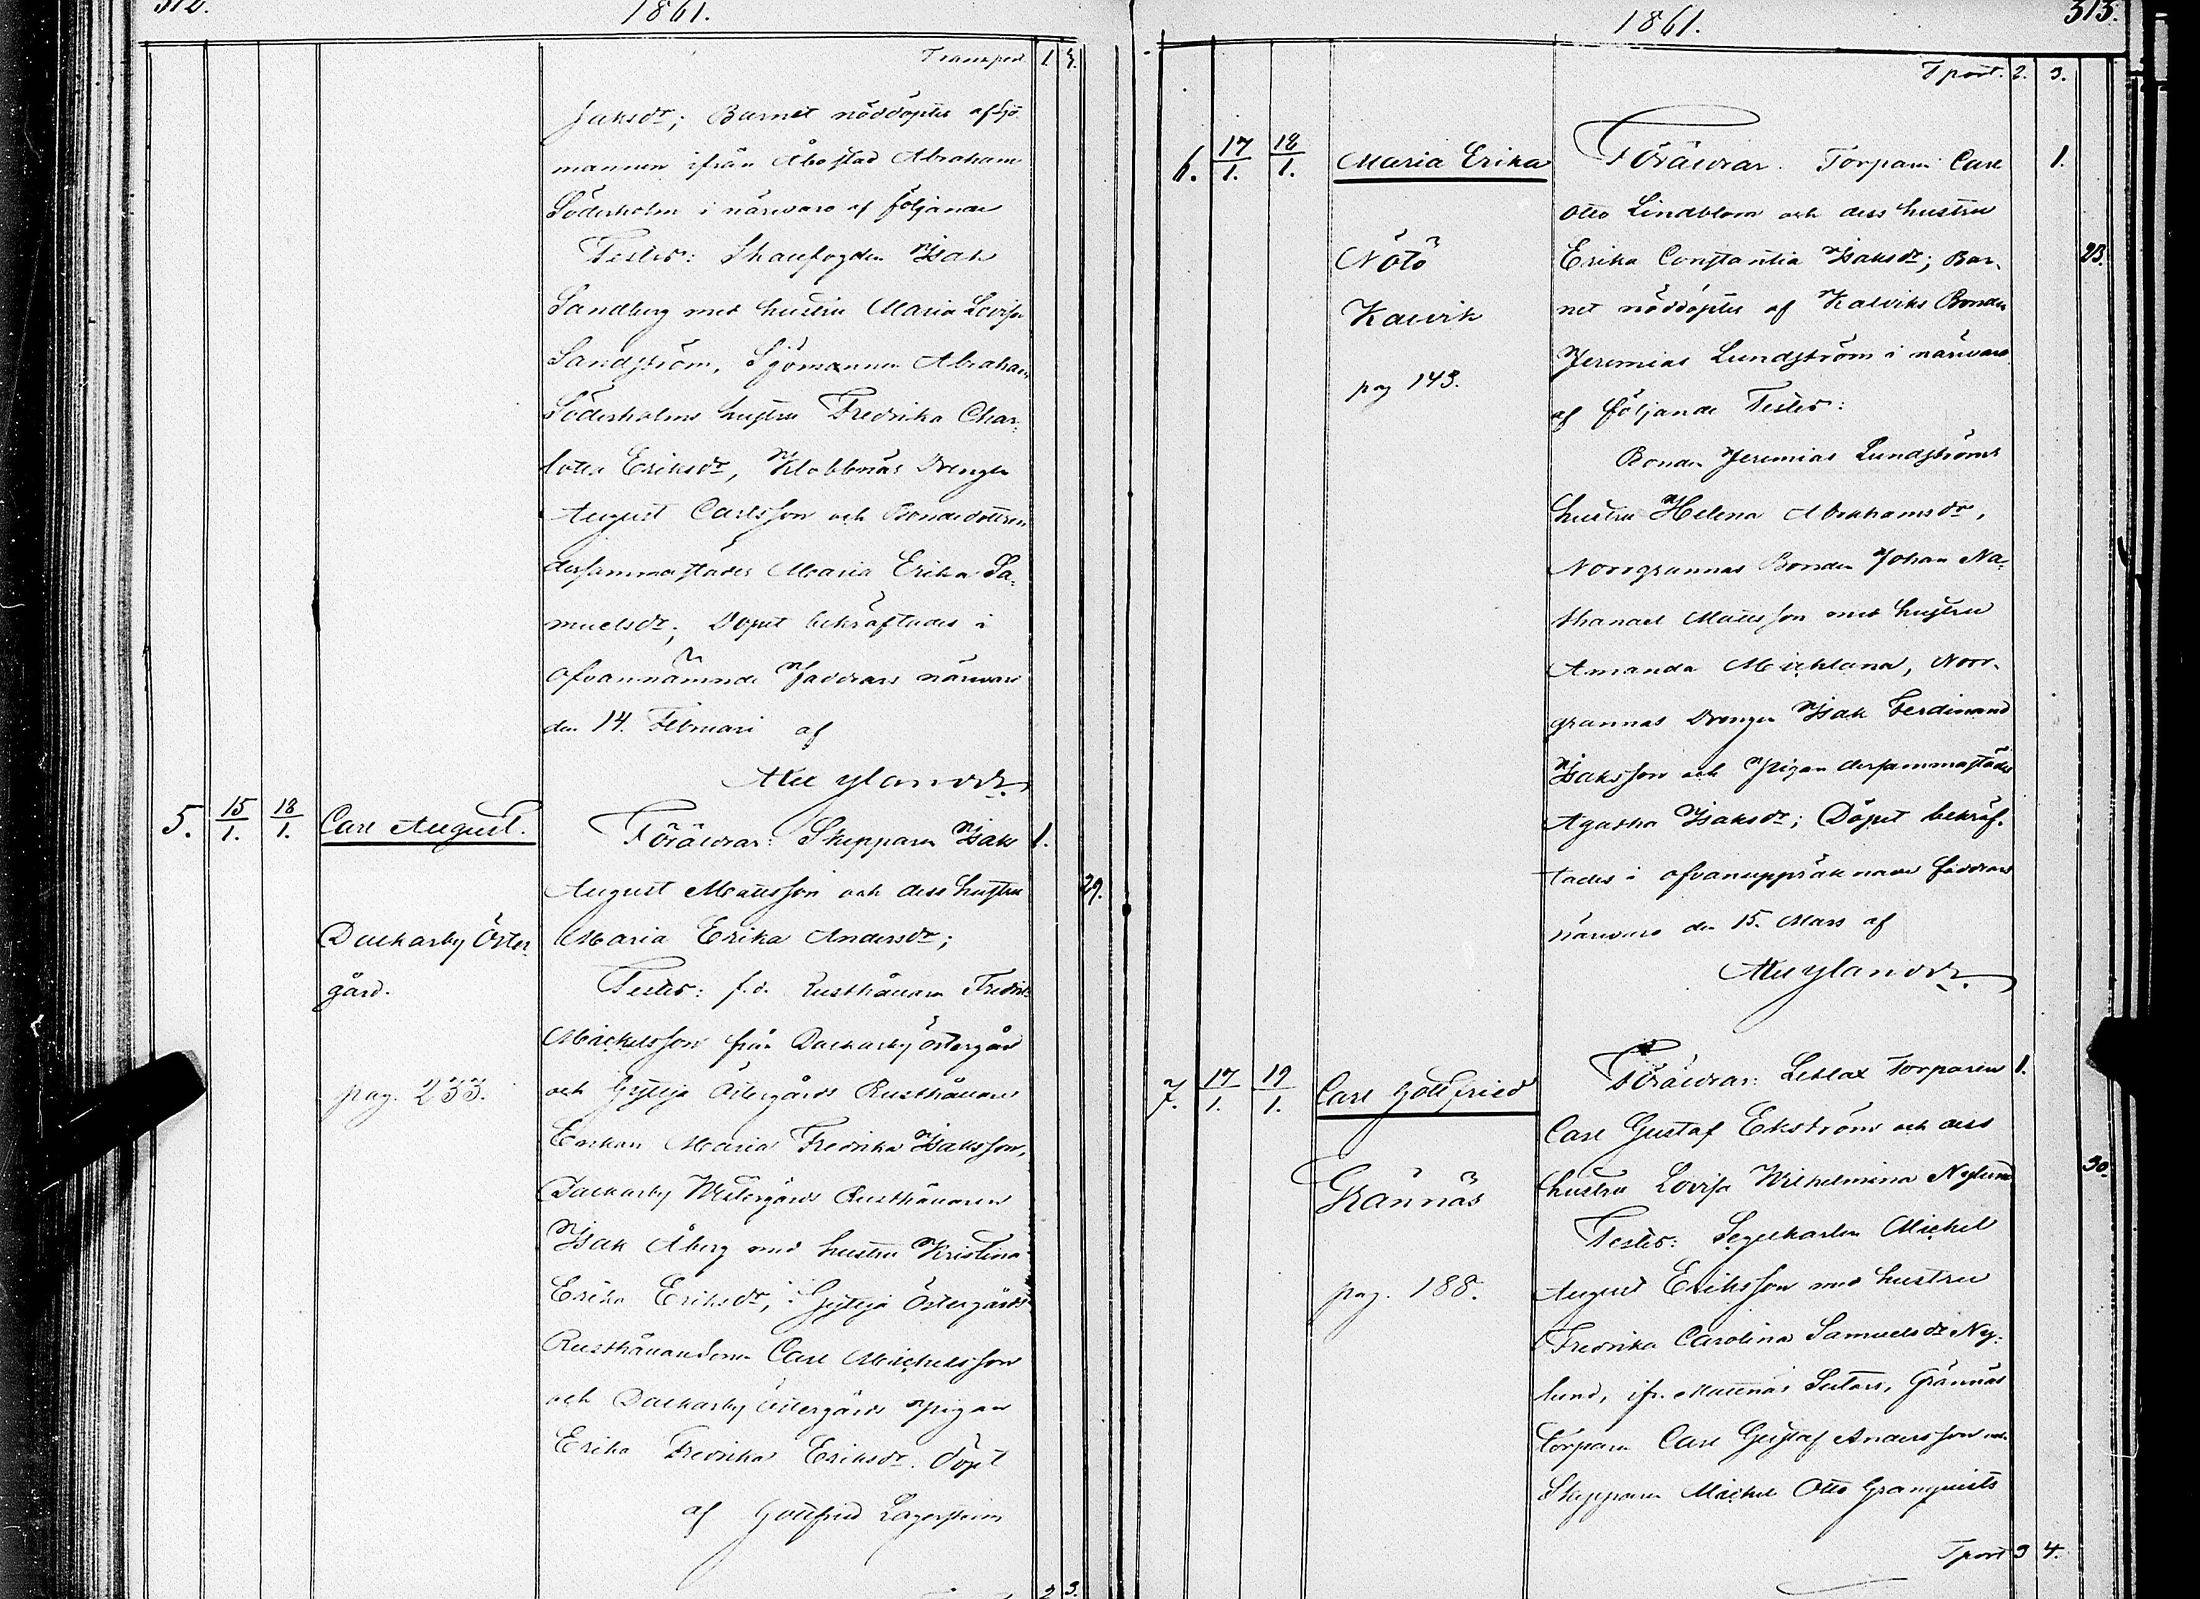 312.
1861.
Transport 1. 3.
Jaksdr; Barnet nöddöptes af Sjö
mannen ifrån Åbo stad Abraham
Söderholm i närvaro af följande
Testes: Skaufogden Isak
Sandberg med hustru Maria Lovisa
Sandström, Sjömannen Abraham
Söderholms hustru Fredrika Char-
lotta Eriksdr, Klobbnäs Drengen
August Carlsson och Bondedottren
dersammastädes Maria Erika Sa-
muelsdr; Dopet bekräftades i
ofvannämnde Faddrars närvaro
den 14. Februari af
5. 15/1. 18/1. Carl August. Föräldrar: Skepparen Isak 1.
August Mattsson och dess hustru 29.
Dalkarby Öster- Maria Erika Andersdr;
gård. Testes: f.d. Rusthållaren Fredrik
Michelsson från Dalkarby Östergård
pag. 233. och Gyttja Östergårds Rusthållares
Enkan Maria Fredrika Isaksson,
Dalkarby Westergårds Rusthållaren
Isak Åberg med hustru Kristina
Erika Eriksdr, Gyttja Östergårds
Rusthållaresonen Carl Michelsson
och Dalkarby Östergårds Pigan
Erika Fredrika Eriksdr. Döpt
af Gottfried Lagerström
2 3.
1861.
313.
Tport. 2. 3.
6. 17/1. 18/1. Maria Erika Föräldrar. Torparen Carl 1.
Otto Lindblom och dess hustru
Nötö Erika Constantia Isaksdr; Bar- 23.
Kalvik net nöddöptes af Kalviks Bonden
Jeremias Lundström i närvaro
pag 143. af följande Testes:
Bonden Jeremias Lundströms
hustru Helena Abrahamsdr,
Norrgrannas Bonden Johan Na-
thanael Mattsson med hustru
Amanda Michelina, Norr-
grannas Drengen Isak Ferdinand
Isaksson och Pigan dersammastädes
Agatha Isaksdr; Döpet bekräf-
tades i ofvanuppräknade faddrars
närvaro den 15. Mars af
7. 17/1. 19/1. Carl Gottfried Föräldrar: Lellax Torparen 1.
Carl Gustaf Ekström och dess
Grännäs hustru Lovisa Wilhelmina Nylund 30.
Testes: Segelkarlen Michel
pag. 188. August Eriksson med hustru
Fredrika Carolina Samuelsdr Ny-
lund, ifr. Mattnäs Sutars, Grännäs
Torparen Carl Gustaf Andersson och
Skepparen Michel Otto Granqvists
Tport 3 4.